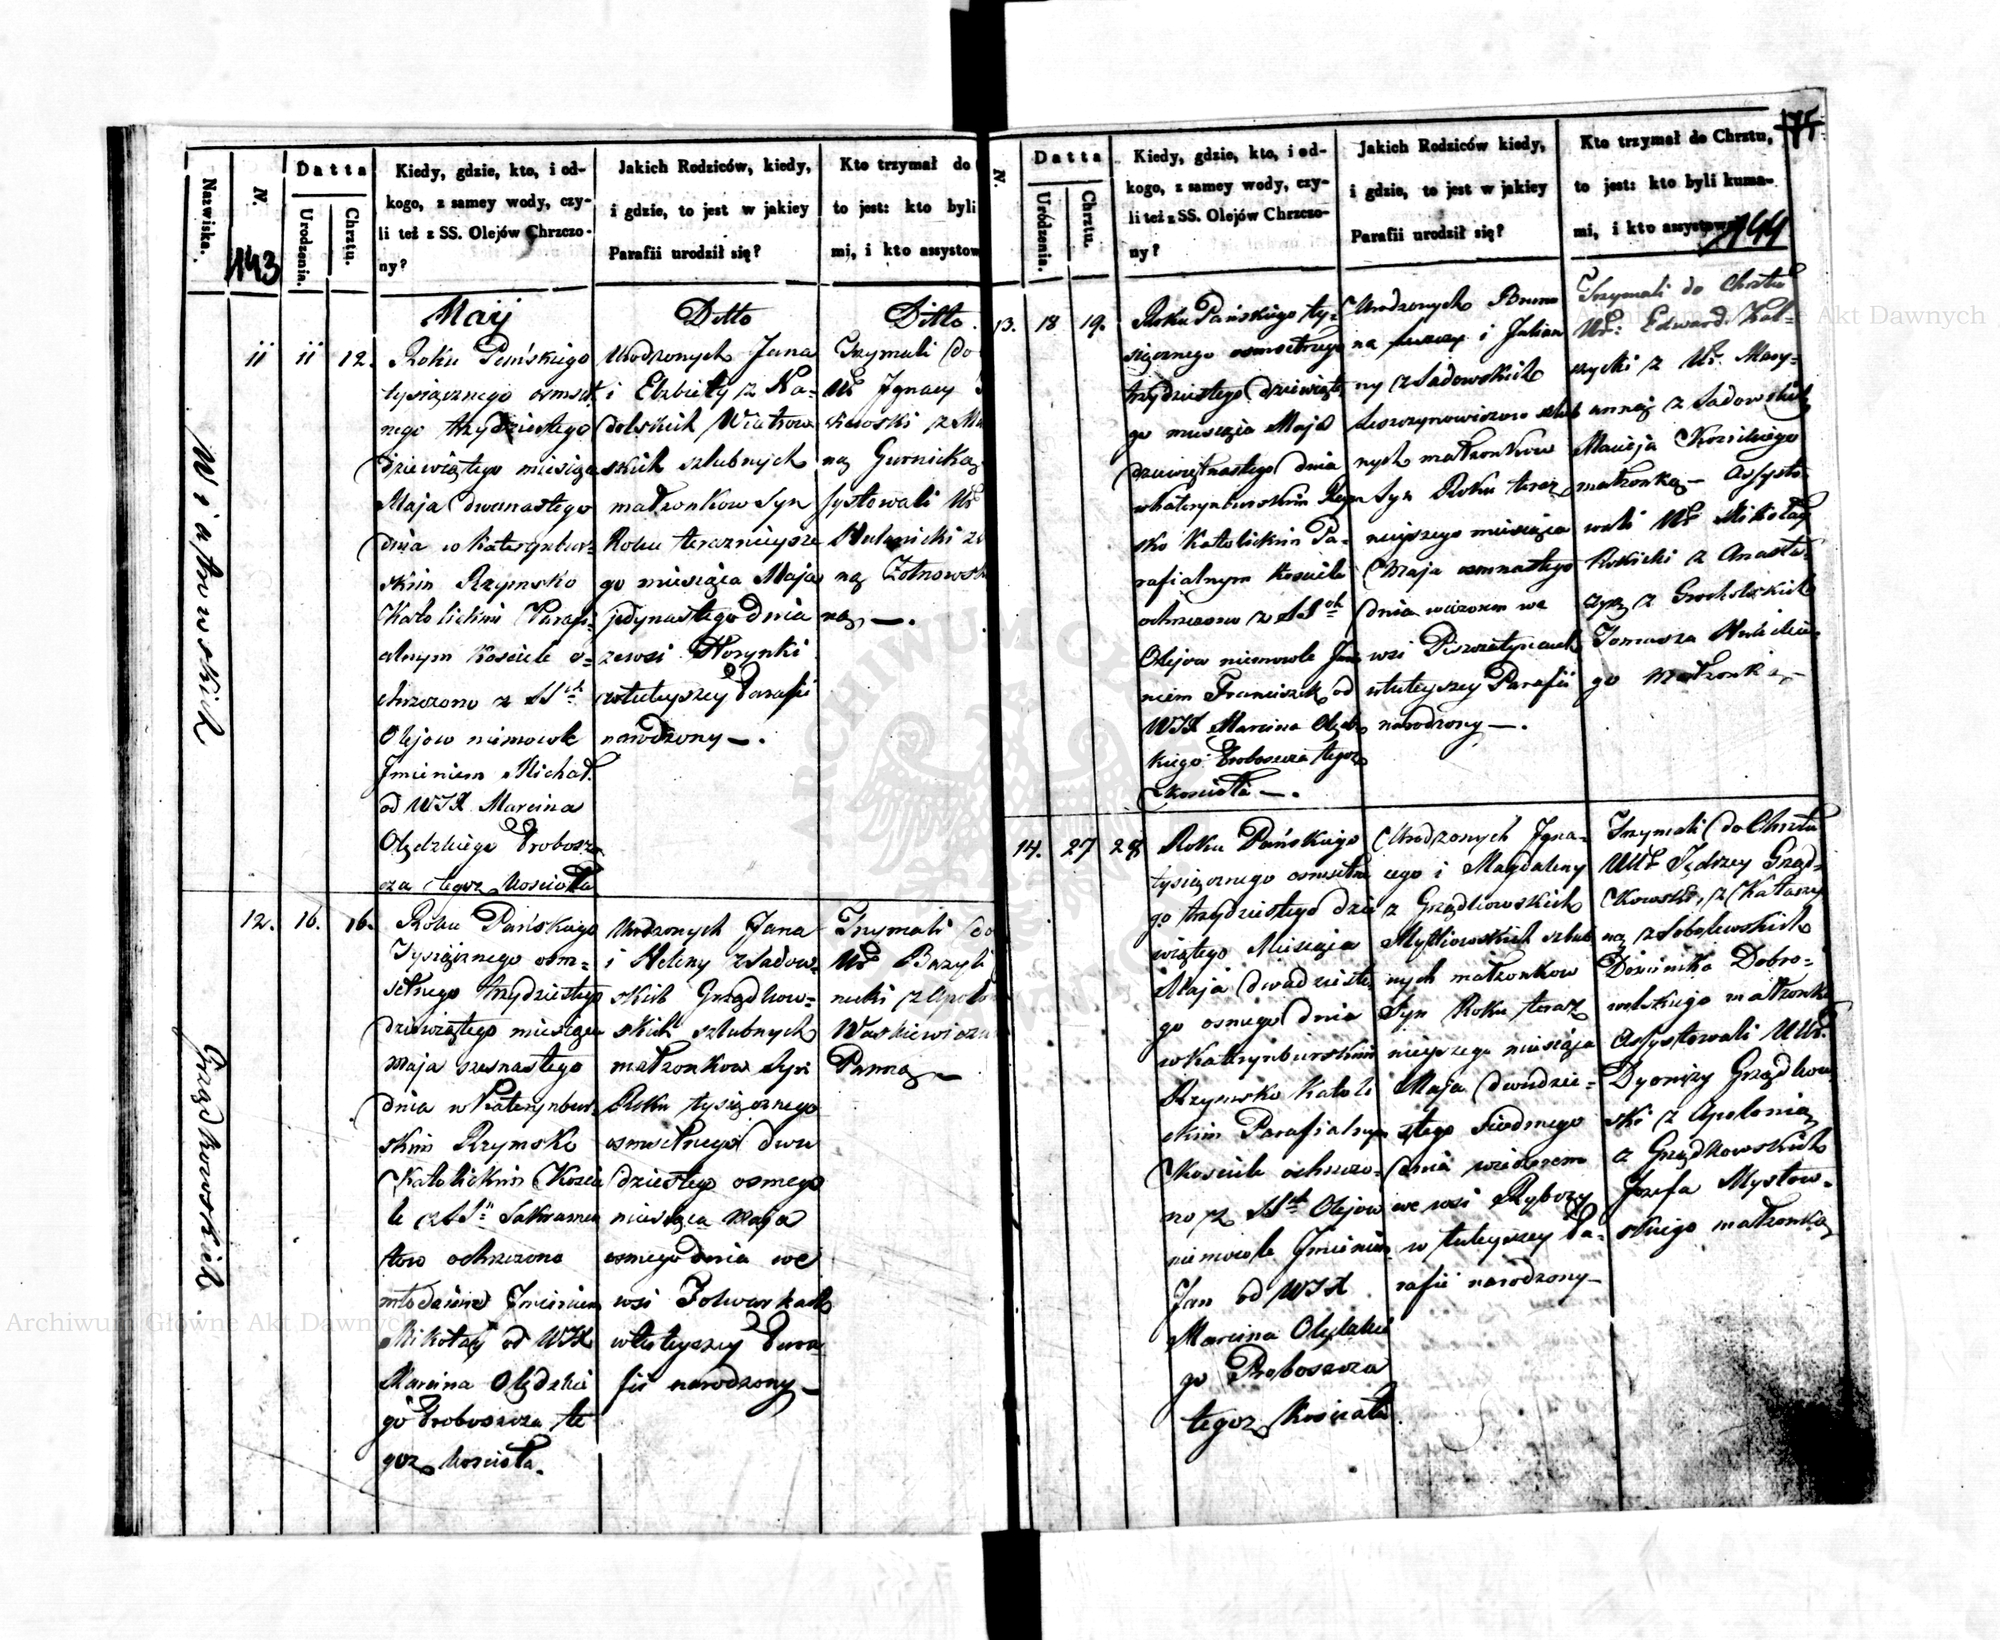 Nazwiska.
N.
143
Datta
Urodzenia.
Chrztu.
Kiedy, gdzie, kto, i od-
kogo, z samey wody, czy-
li też z SS. Olejów Chrzczo-
ny?
Jakich Rodziców, kiedy,
i gdzie, to jest w jakiey
Parafii urodził się?
Kto trzymał do
to jest: kto byli
mi, i kto assystow
Wiatrowskich
ii
ii
12.
Maij
Roku Pańskiego
tysiącznego osmset
nego trzydziestego
dziewiątego miesiąca
Maja dwunastego
dnia w Katerynbur-
skim Rzymsko
Katolickim Parafi
alnym Kosciele o-
chrzczono z SS.ch
Olejow niemowle
Jmieniem Michał
od WJX Marcina
Olędzkiego Probosz
cza tegoz Koscioła
Ditto
Urodzonych Jana
i Elzbiety z Na-
dolskich Wiatrow
skich szlubnych
małzonkow Syn
Roku teraznieysze
go miesiąca Maja
jedynastego dnia
zewsi Horynki
wtuteyszey Parafii
narodzony —.
Ditto
Trzymali do
Ur Jgnacy
ną Gurnicką
systowali Ur
ną Żołnowsk
ną —.
Grządkowskich.
12.
16.
16.
Roku Pańskiego
Tysiącznego osm-
setnego trzydziestego
dziewiątego miesiąca
Maja szesnastego
dnia w Katerynbur-
skim Rzymsko
Katolickim Koscie
le z SS.ch Sakramen
tow ochrzczono
młodzienca Jmieniem
Mikołay od WJX
Marcina Olędzkie
go Proboszcza te
goz Koscioła.
Urodzonych Jana
i Heleny z Sadow-
skich Grządkow-
skich szlubnych
małzonkow Syn
Roku tysiącznego
osmsetnego dwu
dziestego osmego
miesiąca Maja
osmego dnia we
wsi Folwarkach
wtuteyszey Para-
fii narodzony —
Trzymali do
Ur Bazyli
nicki z Apolo
Waskiewiczu
Panną —
N.
Datta
Urodzenia.
Chrztu.
Kiedy, gdzie, kto, i od-
kogo, z samey wody, czy-
li też z SS. Olejów Chrzczo-
ny?
Jakich Rodziców kiedy,
i gdzie, to jest w jakiey
Parafii urodził się?
Kto trzymał do Chrztu,
to jest: kto byli kuma-
mi, i kto assystow
144
175
13.
18
19.
Roku Pańskiego ty-
siącznego osmsetnego
trzydziestego dziewiąte
go miesiąca Maja
dziewiętnastego dnia
w Katerynburskim Rzym
sko Katolickim Pa-
rafialnym Kosciele
ochrzczono z SS.ch
Olejow niemowle Jmie
niem Franciszek od
WJX Marcina Olędz
kiego Proboszcza tegoz
Koscioła —.
Urodzonych Bruno
na i Julian
ny z Sadowskich
Leszczynowiczow szlub
nych małzonkow
Syn Roku teraz
nieyszego miesiąca
Maja osmnastego
dnia wieczorem we
wsi Piszczatyncach
wtuteyszey Parafii
narodzony —.
Trzymali do Chrztu
Ur: Edward
z Ur. Mary-
anną z Sadowskich
Macieja Kozickiego
małzonką — Assysto-
wali Ur Mikołay
Rokicki z Anasta-
zyą z Grocholskich
Tomasza
go Małzonką —
14.
27
28
Roku Pańskiego
tysiącznego osmsetne
go trzydziestego dzie
wiątego Miesiąca
Maja dwudzieste
go osmego dnia
w Katerynburskim
Rzymsko Katoli
ckim Parafialnym
Kosciele ochrzczo-
no z SS.ch Olejow
niemowle Jmieniem
Jan od WJX
Marcina Olędzkie
go Proboszcza
tegoz Koscioła
Urodzonych Jgna-
cego i Magdaleny
z Grządkowskich
Mystkowskich szlub
nych małzonkow
Syn Roku teraz
nieyszego miesiąca
Maja dwudzie-
stego siodmego
dnia wieczorem
we wsi Rybczy
w tuteyszey Pa-
rafii narodzony —
Trzymali do Chrztu
UUr Jędrzey Grząd-
kowski, z Katarzy
ną z Sobolewskich
Dominika Dobro-
wolskiego małzonką
Assystowali UUr.
Dyonizy Grządkow
ski z Apolonią
z Grządkowskich
Jozefa Mystkow-
skiego małzonką
Archiwum Główne Akt Dawnych
Archiwum Główne Akt Dawnych